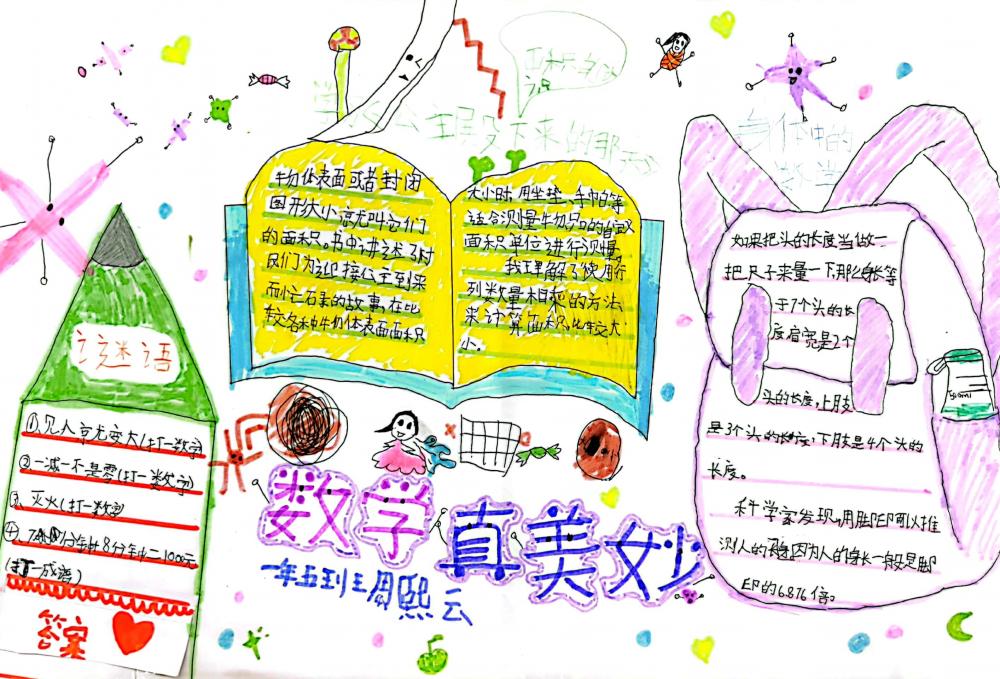 面积知识
公主殿下来的那天
身体中的
数学
谜语
①见人就变大(打一数字)
②一减一不是零(打一数字)
③灭火(打一数字)
8分钟=1000元
(打一成语)
答案
物体表面或者封闭
图形大小就叫它们
的面积。书中讲述了村
民们为迎接公主到来
而忙石素的故事,在比
较各种物体表面面积
大小时,用坐垫、手帕等
适合测量物品的
面积单位进行测量。
我理解了使用行
列数量相乘的方法
来计算面积,比较大
小。
如果把头的长度当做一
把尺子来量一下那么身长等
于7个头的长
度肩宽是2个
头的长度,上肢
是3个头的长度,下肢是4个头的
长度。
科学家发现,用脚印可以推
测人的身高因为人的身长一般是脚
印的6.876倍。
数学
真美妙
一年五班王周熙云